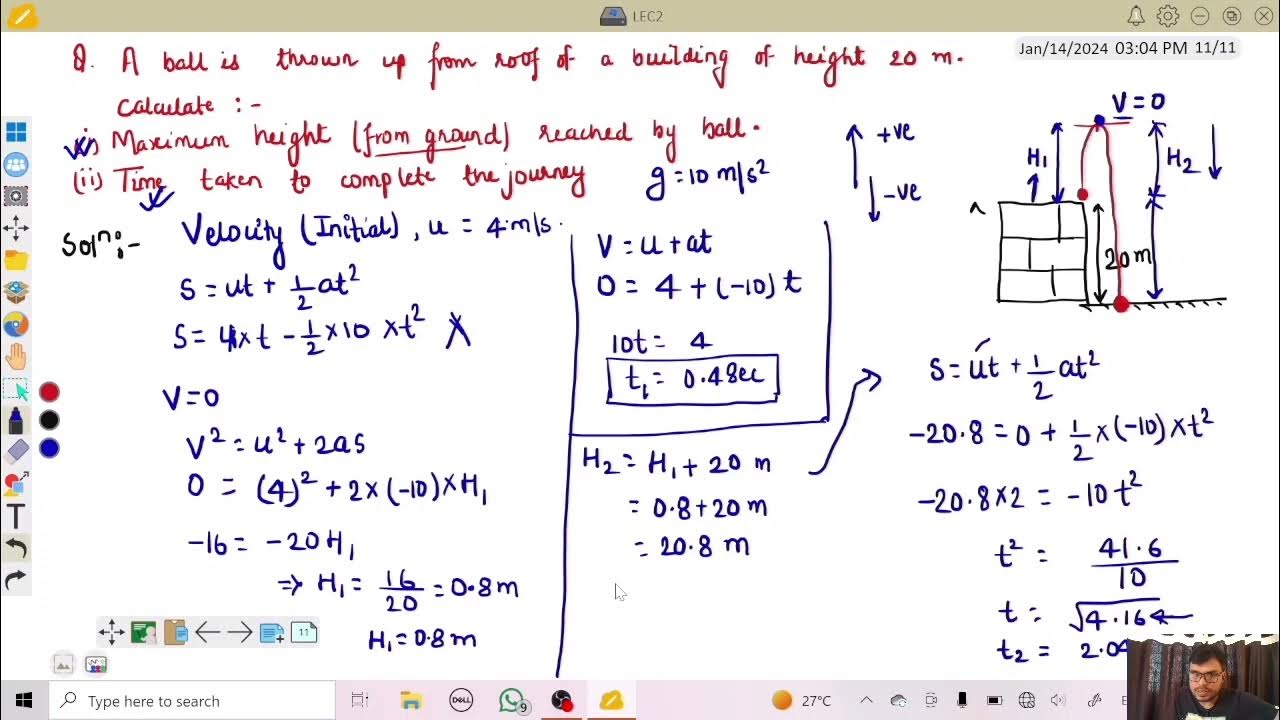 LEC2
Jan/14/2024 03:04 PM 11/11
Q. A ball is thrown up from roof of a building of height 20 m.
Calculate :-
(i) Maximum height (from ground) reached by ball.
(ii) Time taken to complete the journey
g = 10 m/s²
+ve
-ve
V = 0
H₁
H₂
20 m
Solⁿ:-
Velocity (Initial), u = 4 m/s.
S = ut + 1/2 at²
S = 4 × t - 1/2 × 10 × t² X
V = 0
V² = u² + 2as
0 = (4)² + 2 × (-10) × H₁
-16 = -20 H₁
⇒ H₁ = 16/20 = 0.8 m
H₁ = 0.8 m
V = u + at
0 = 4 + (-10) t
10t = 4
t₁ = 0.4 sec
H₂ = H₁ + 20 m
= 0.8 + 20 m
= 20.8 m
S = ut + 1/2 at²
-20.8 = 0 + 1/2 × (-10) × t²
-20.8 × 2 = -10 t²
t² = 41.6/10
t = √4.16
t₂ = 2.0
11
T
Type here to search
DELL
9
27°C